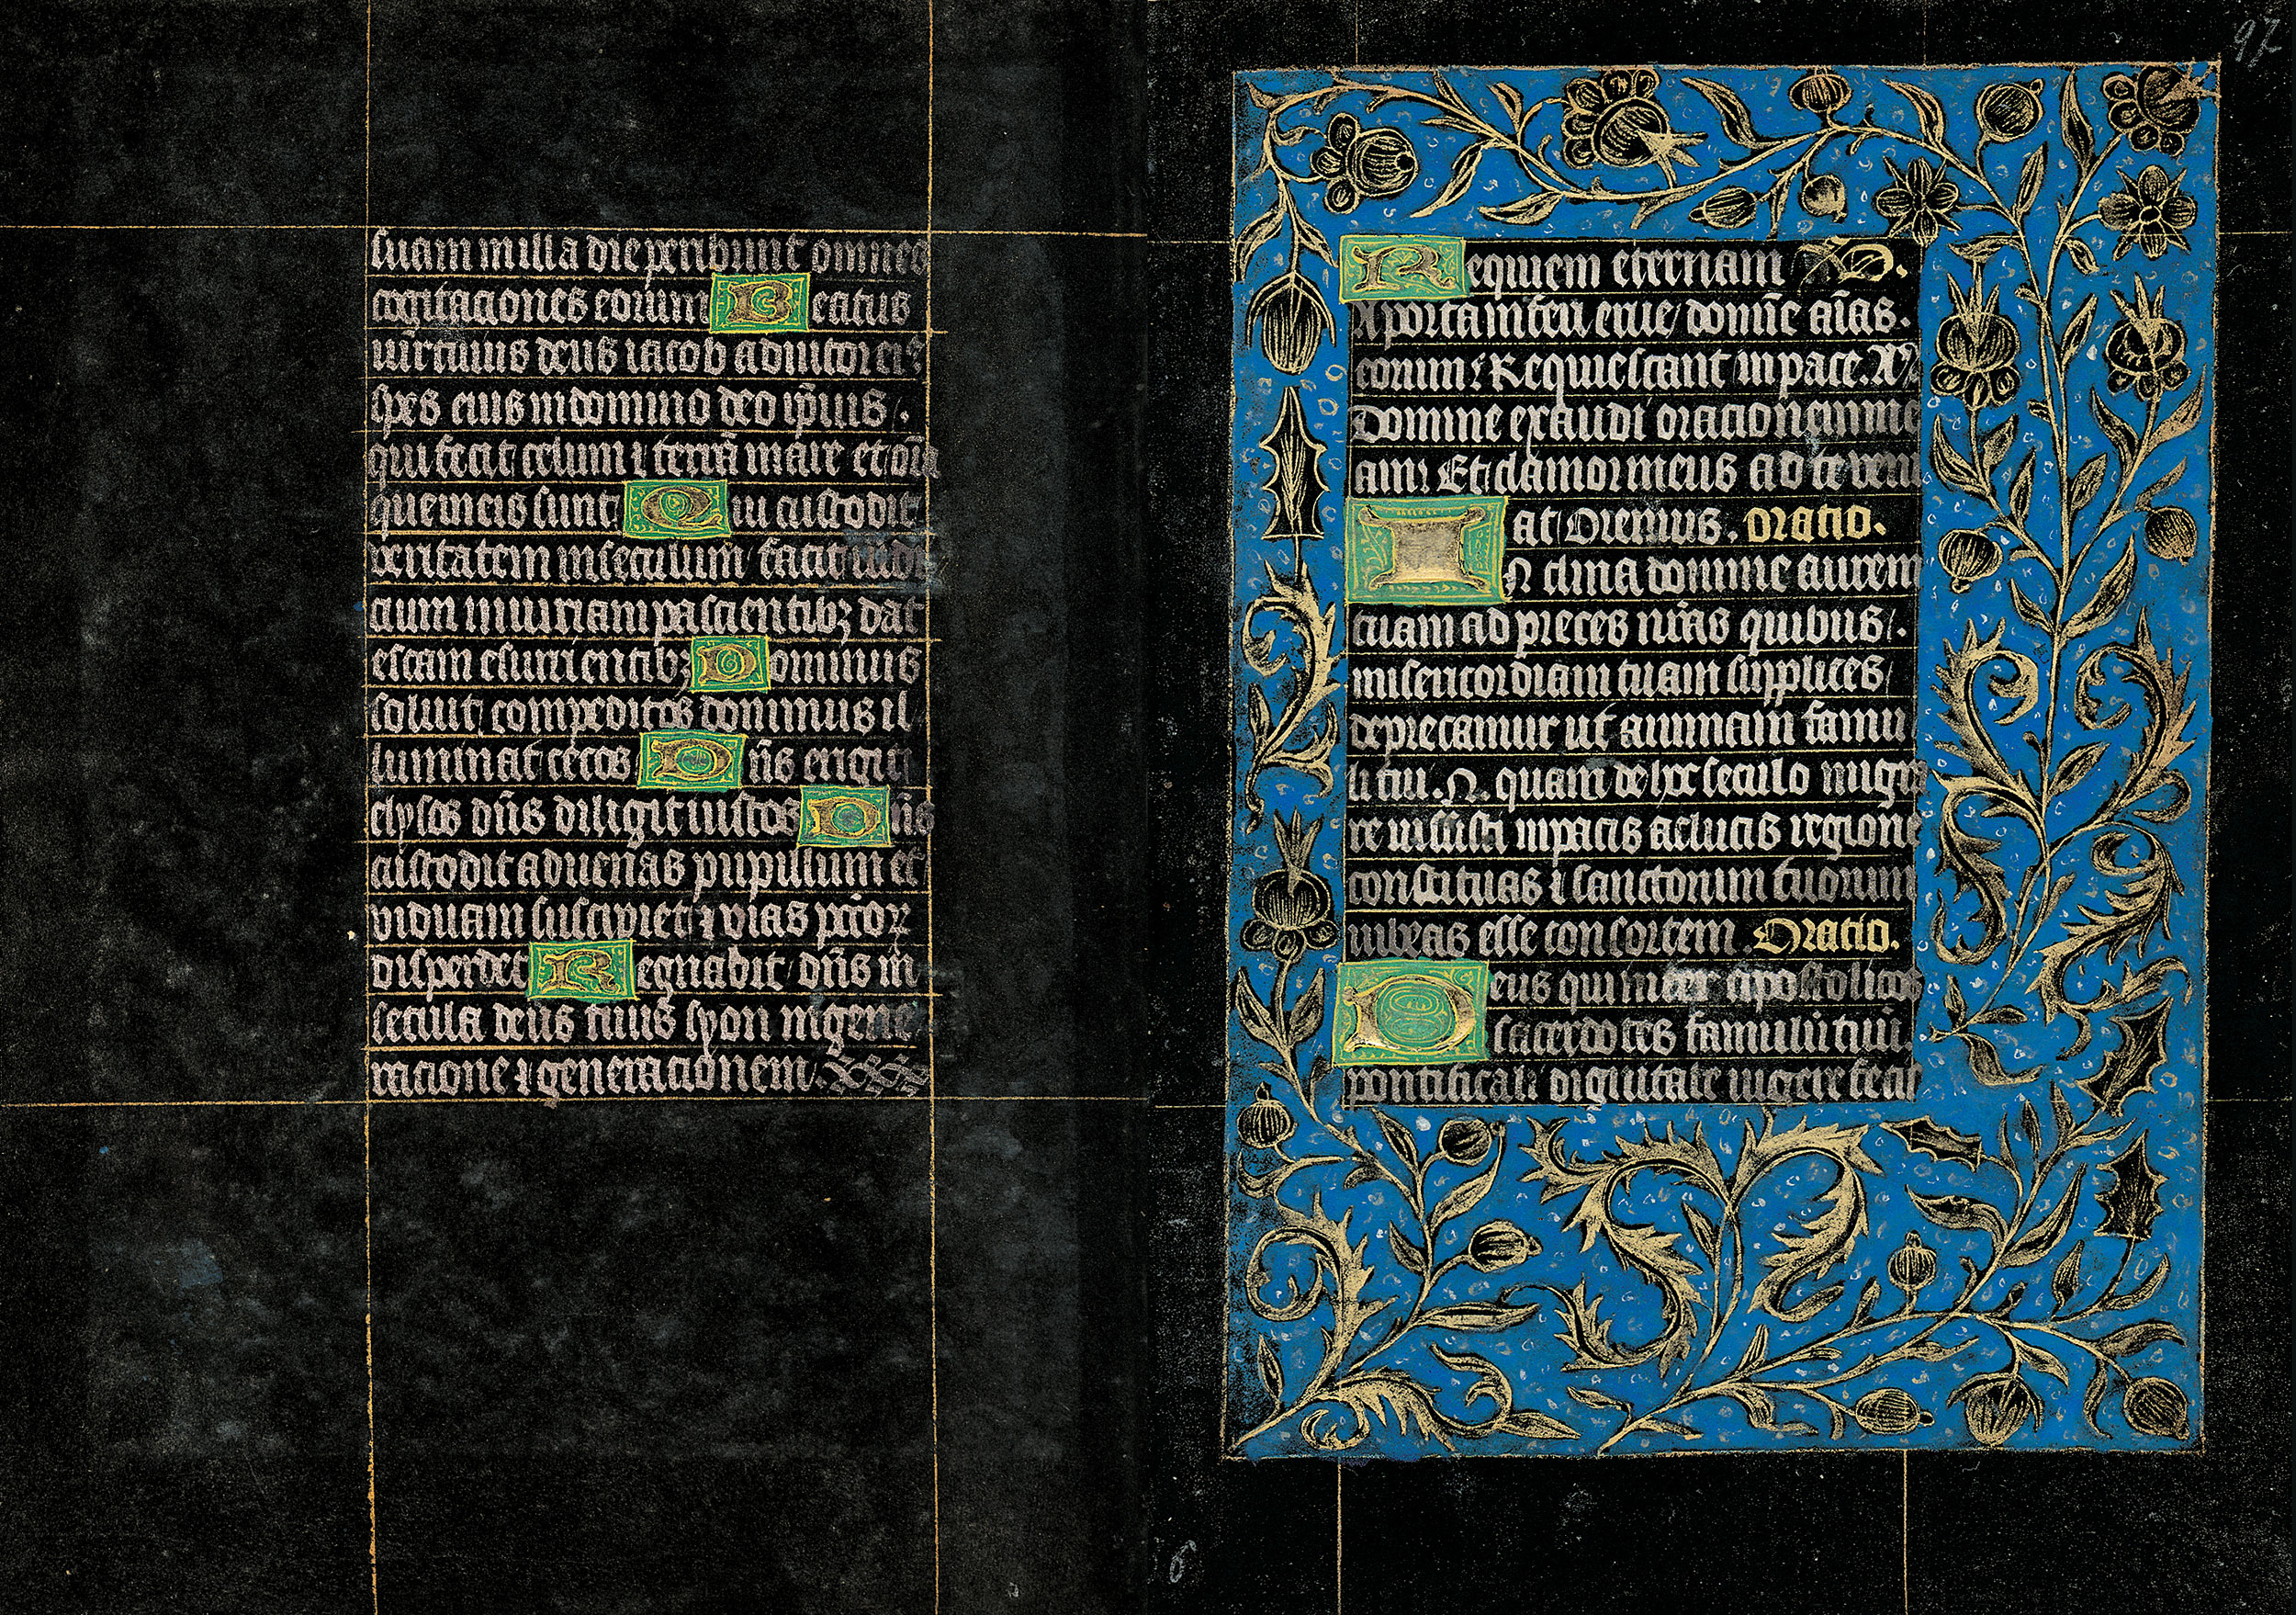 suam in illa die peribunt omnes
cogitaciones eorum Beatus
cuius deus iacob adiutor ei9
spes eius in domino deo ip̄ius.
qui fecit celum ⁊ terrā mare et oīa
que in eis sunt Qui custodit
veritatem in seculum facit iudi
cium iniuriam pascientibꝫ dat
escam esurientibꝫ Dominus
soluit compeditos dominus il
luminat cecos Dn̄s erigit
elysos dn̄s diligit iustos Dn̄s
custodit aduenas pupillum et
viduam suscipiet ⁊ vias pctōꝝ
disperdet Regnabit dn̄s in
secula deus tuus syon in gene
racione ⁊ generacionem.
97
Requiem eternam
A porta inferi erue domīe aīas.
eorum Requiescant in pace.
Domine exaudi oracionem me
am Et clamor meus ad te veni
at Oremus. Oratio.
In clina domine aurem
tuam ad preces nr̄as quibus.
misericordiam tuam supplices
deprecamur ut animam famu
li tui .N. quam de hoc seculo migra
re iussisti in pacis ac lucis regione
constituas ⁊ sanctorum tuorum
iubeas esse consortem. Oratio.
Deus qui inter apostolicos
sacerdotes famulū tuū.
pontificali dignitate vigere fecis
6